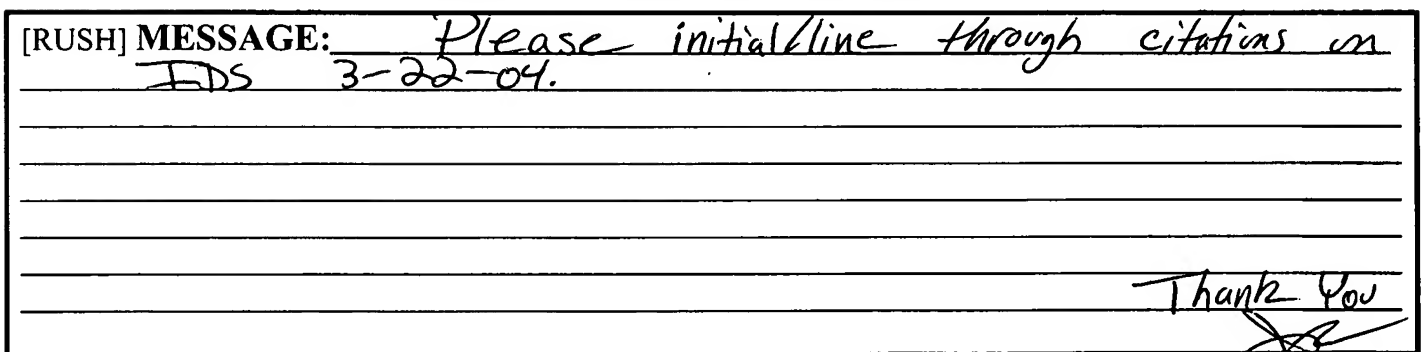 [RUSH] MESSAGE: Please initial/line through citations on
IDS 3-22-04.
Thank You